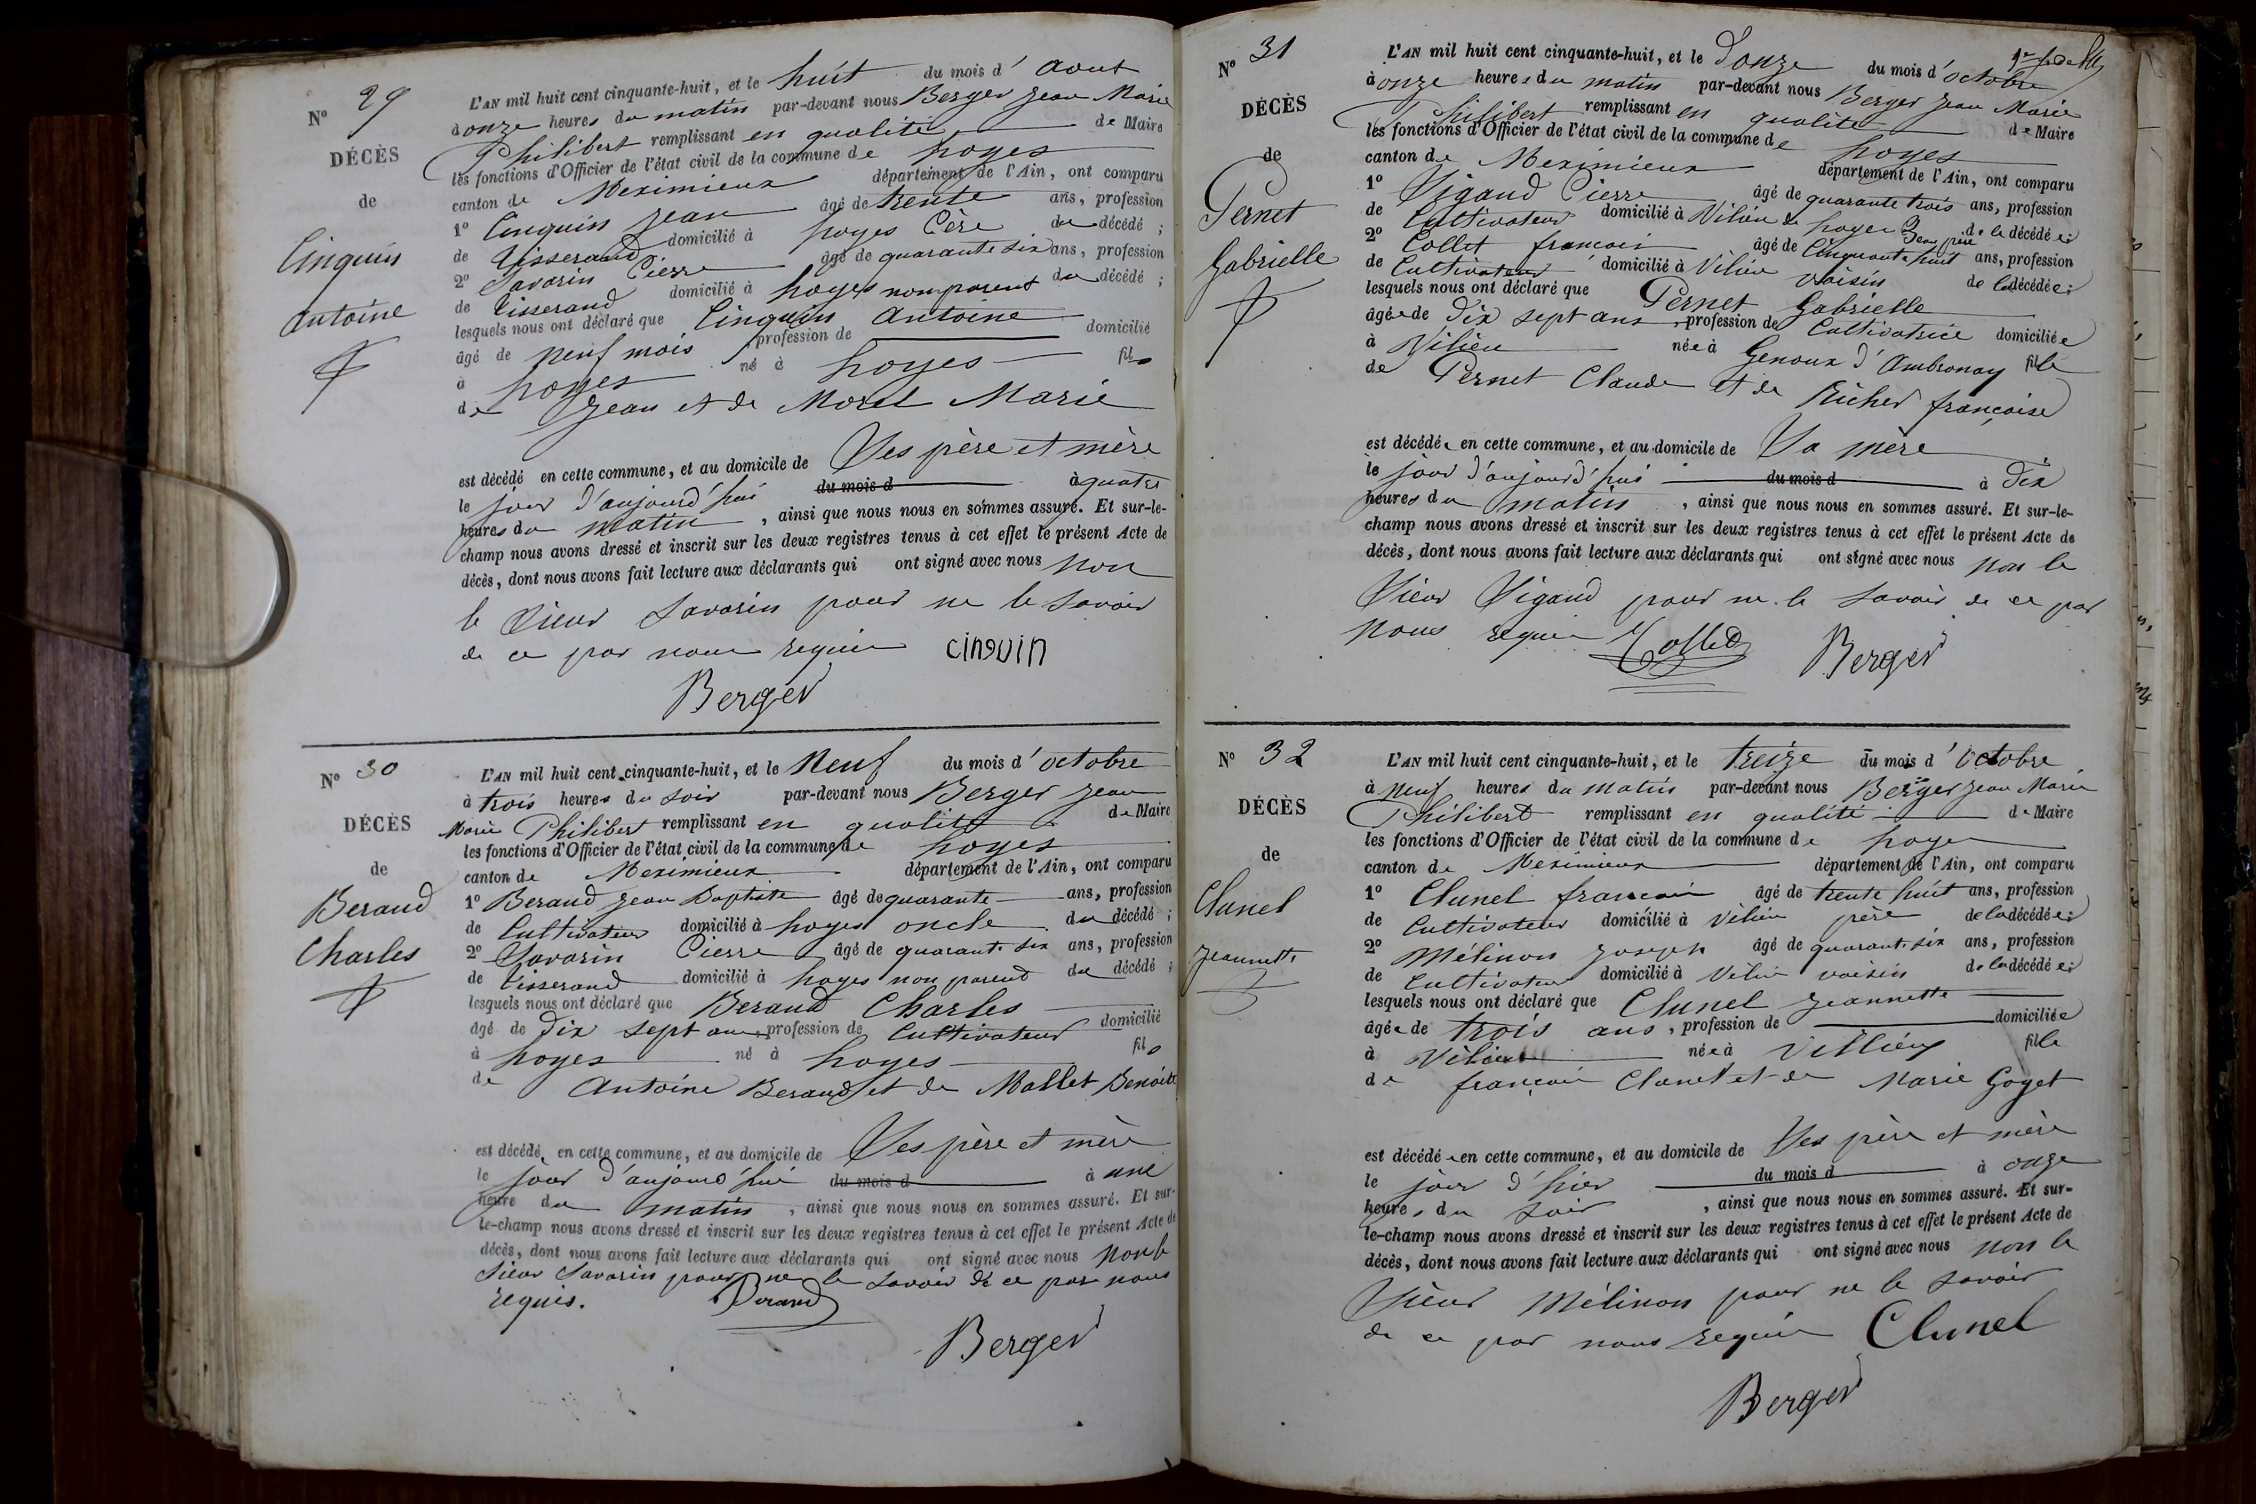 N° 29
DÉCÈS
de
Cinquin
Antoine
L'AN mil huit cent cinquante-huit, et le huit du mois d' Aout
à onze heures du matin par-devant nous Berger Jean Marie
Philibert remplissant en qualité de Maire
les fonctions d'Officier de l'état civil de la commune de Loyes
canton de Meximieux département de l'Ain, ont comparu
1° Cinquin Jean âgé de trente ans, profession
de Tisserand domicilié à Loyes Père du décédé ;
2° Savarin Pierre âgé de quarante six ans, profession
de Tisserand domicilié à Loyes non parent du décédé ;
lesquels nous ont déclaré que Cinquin Antoine
âgé de neuf mois profession de domicilié
à Loyes né à Loyes fils
de Jean et de Morel Marie
est décédé en cette commune, et au domicile de Ses père et mère
le jour d'aujourd'hui du mois d à quatre
heures du matin , ainsi que nous nous en sommes assuré. Et sur-le-
champ nous avons dressé et inscrit sur les deux registres tenus à cet effet le présent Acte de
décès, dont nous avons fait lecture aux déclarants qui ont signé avec nous non
le Sieur Savarin pour ne le savoir
de ce par nous requis cinquin
Berger
N° 30
DÉCÈS
de
Beraud
Charles
L'AN mil huit cent cinquante-huit, et le Neuf du mois d' octobre
à trois heures du soir par-devant nous Berger Jean
Marie Philibert remplissant en qualité de Maire
les fonctions d'Officier de l'état civil de la commune de Loyes
canton de Meximieux département de l'Ain, ont comparu
1° Beraud Jean Baptiste âgé de quarante ans, profession
de Cultivateur domicilié à Loyes oncle du décédé ;
2° Savarin Pierre âgé de quarante six ans, profession
de Tisserand domicilié à Loyes non parent du décédé ;
lesquels nous ont déclaré que Beraud Charles
âgé de Dix sept ans, profession de Cultivateur domicilié
à Loyes né à Loyes fils
de Antoine Beraud et de Mallet Benoite
est décédé en cette commune, et au domicile de Ses père et mère
le jour d'aujourd'hui du mois d à une
heure du matin , ainsi que nous nous en sommes assuré. Et sur-
le-champ nous avons dressé et inscrit sur les deux registres tenus à cet effet le présent Acte de
décès, dont nous avons fait lecture aux déclarants qui ont signé avec nous non le
Sieur Savarin pour ne le savoir de ce par nous
requis. Beraud
Berger
N° 31
DÉCÈS
de
Pernet
Gabrielle
L'AN mil huit cent cinquante-huit, et le Douze du mois d' octobre
à onze heures du matin par-devant nous Berger Jean Marie
Philibert remplissant en qualité de Maire
les fonctions d'Officier de l'état civil de la commune de Loyes
canton de Meximieux département de l'Ain, ont comparu
1° Vigaud Pierre âgé de quarante trois ans, profession
de Cultivateur domicilié à Vilieu de Loyes Beau père de la décédée ;
2° Collet françois âgé de Cinquante huit ans, profession
de Cultivateur domicilié à Vilieu voisin de la décédée ;
lesquels nous ont déclaré que Pernet Gabrielle
âgée de Dix sept ans, profession de Cultivatrice domiciliée
à Vilieu née à Genoux d'Ambronay fille
de Pernet Claude et de Richer françoise
est décédée en cette commune, et au domicile de Sa mère
le jour d'aujourd'hui du mois d à Dix
heures du matin , ainsi que nous nous en sommes assuré. Et sur-le-
champ nous avons dressé et inscrit sur les deux registres tenus à cet effet le présent Acte de
décès, dont nous avons fait lecture aux déclarants qui ont signé avec nous non le
Sieur Vigaud pour ne le savoir de ce par
nous requis Collet Berger
N° 32
DÉCÈS
de
Clunel
Jeannette
L'AN mil huit cent cinquante-huit, et le treize du mois d' octobre
à neuf heures du matin par-devant nous Berger Jean Marie
Philibert remplissant en qualité de Maire
les fonctions d'Officier de l'état civil de la commune de Loyes
canton de Meximieux département de l'Ain, ont comparu
1° Clunel françois âgé de trente huit ans, profession
de Cultivateur domicilié à Vilieu père de la décédée ;
2° Mélinon Joseph âgé de quarante six ans, profession
de Cultivateur domicilié à Vilieu voisin de la décédée ;
lesquels nous ont déclaré que Clunel Jeannette
âgée de trois ans, profession de domiciliée
à Vilieu née à Villieu fille
de françois Clunel et de Marie Goyet
est décédée en cette commune, et au domicile de Ses père et mère
le jour d'hier du mois d à onze
heures du soir , ainsi que nous nous en sommes assuré. Et sur-
le-champ nous avons dressé et inscrit sur les deux registres tenus à cet effet le présent Acte de
décès, dont nous avons fait lecture aux déclarants qui ont signé avec nous non le
Sieur Mélinon pour ne le savoir
de ce par nous requis Clunel
Berger